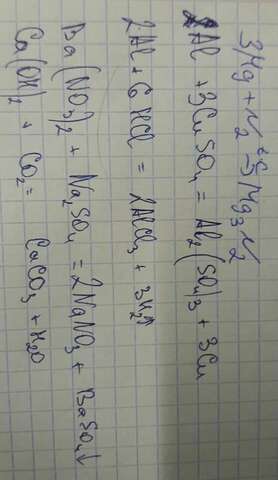 3Mg + N₂ t°→ Mg₃N₂
2Al + 3CuSO₄ = Al₂(SO₄)₃ + 3Cu
2Al + 6HCl = 2AlCl₃ + 3H₂↑
Ba(NO₃)₂ + Na₂SO₄ = 2NaNO₃ + BaSO₄↓
Ca(OH)₂ + CO₂ = CaCO₃ + H₂O